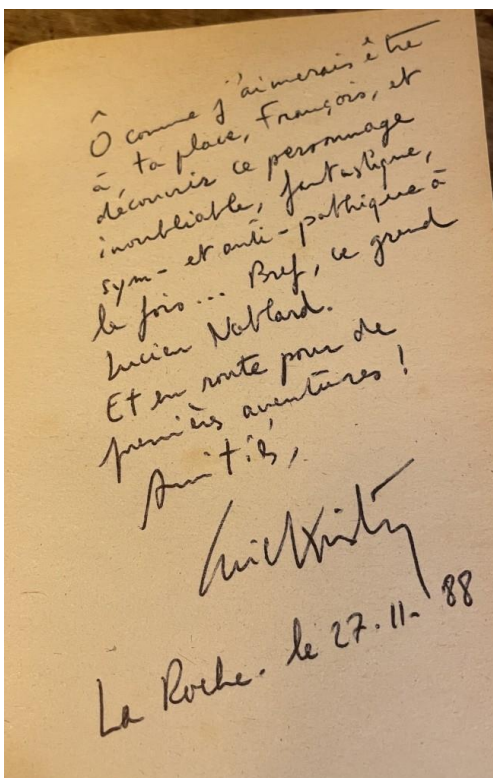 Ô comme j'aimerais être
à ta place, François, et
découvrir ce personnage
inoubliable, fantastique,
sym- et anti-pathique à
la fois... Bref, ce grand
Lucien Nablard.
Et en route pour de
premières aventures !
Amitiés,
La Roche. le 27.11.88